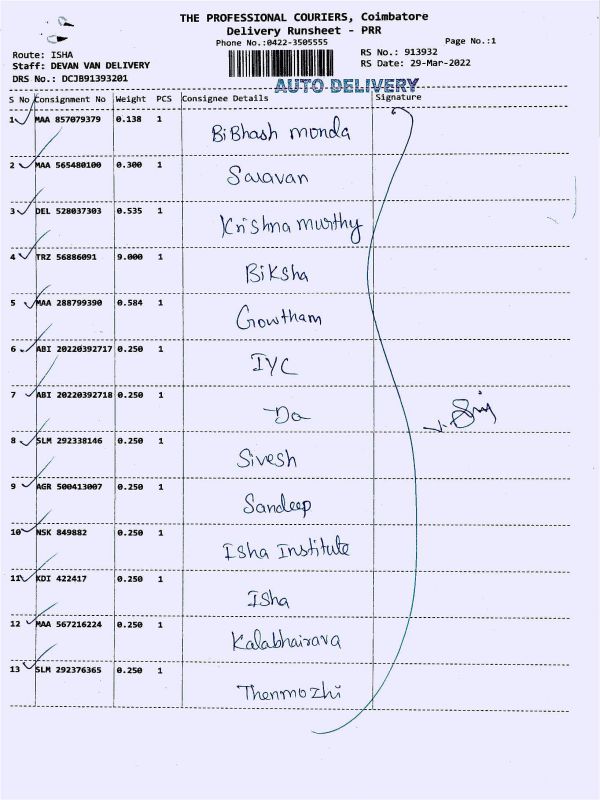 THE PROFESSIONAL COURIERS, Coimbatore
Delivery Runsheet - PRR
Phone No.:0422-3505555
Page No.:1
Route: ISHA
RS No.: 913932
Staff: DEVAN VAN DELIVERY
RS Date: 29-Mar-2022
DRS No.: DCJB91393201
AUTO DELIVERY
S No Consignment No Weight PCS Consignee Details Signature
1 MAA 857079379 0.138 1 BiBhash monda
2 MAA 565480100 0.300 1 Saravan
3 DEL 528037303 0.535 1 Krishna murthy
4 TRZ 56886091 9.000 1 Biksha
5 MAA 288799390 0.584 1 Gowtham
6 ABI 20220392717 0.250 1 IYC
7 ABI 20220392718 0.250 1 Do
8 SLM 292338146 0.250 1 Sivesh
9 AGR 500413007 0.250 1 Sandeep
10 NSK 849882 0.250 1 Isha Institute
11 KDI 422417 0.250 1 Isha
12 MAA 567216224 0.250 1 Kalabhairava
13 SLM 292376365 0.250 1 Thenmozhi